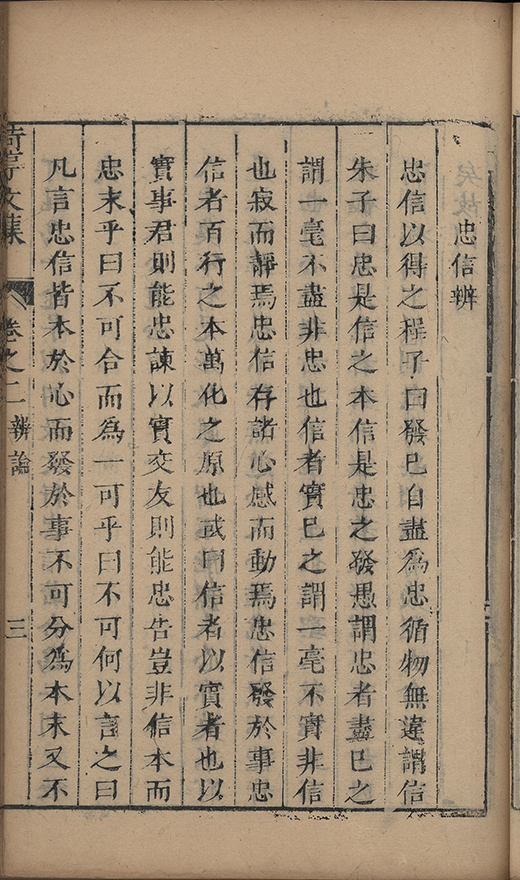 忠信辨
忠信以得之程子曰發已自盡為忠循物無違謂信
朱子曰忠是信之本信是忠之發愚謂忠者盡已之
謂一毫不盡非忠也信者實已之謂一毫不實非信
也寂而靜焉忠信存諸心感而動焉忠信發於事忠
信者百行之本萬化之原也或曰信者以實者也以
實事君則能忠諫以實交友則能忠告豈非信本而
忠末乎曰不可合而為一可乎曰不可何以言之曰
凡言忠信皆本於心而發於事不可分為本末又不
文集
卷之二 辨論
三